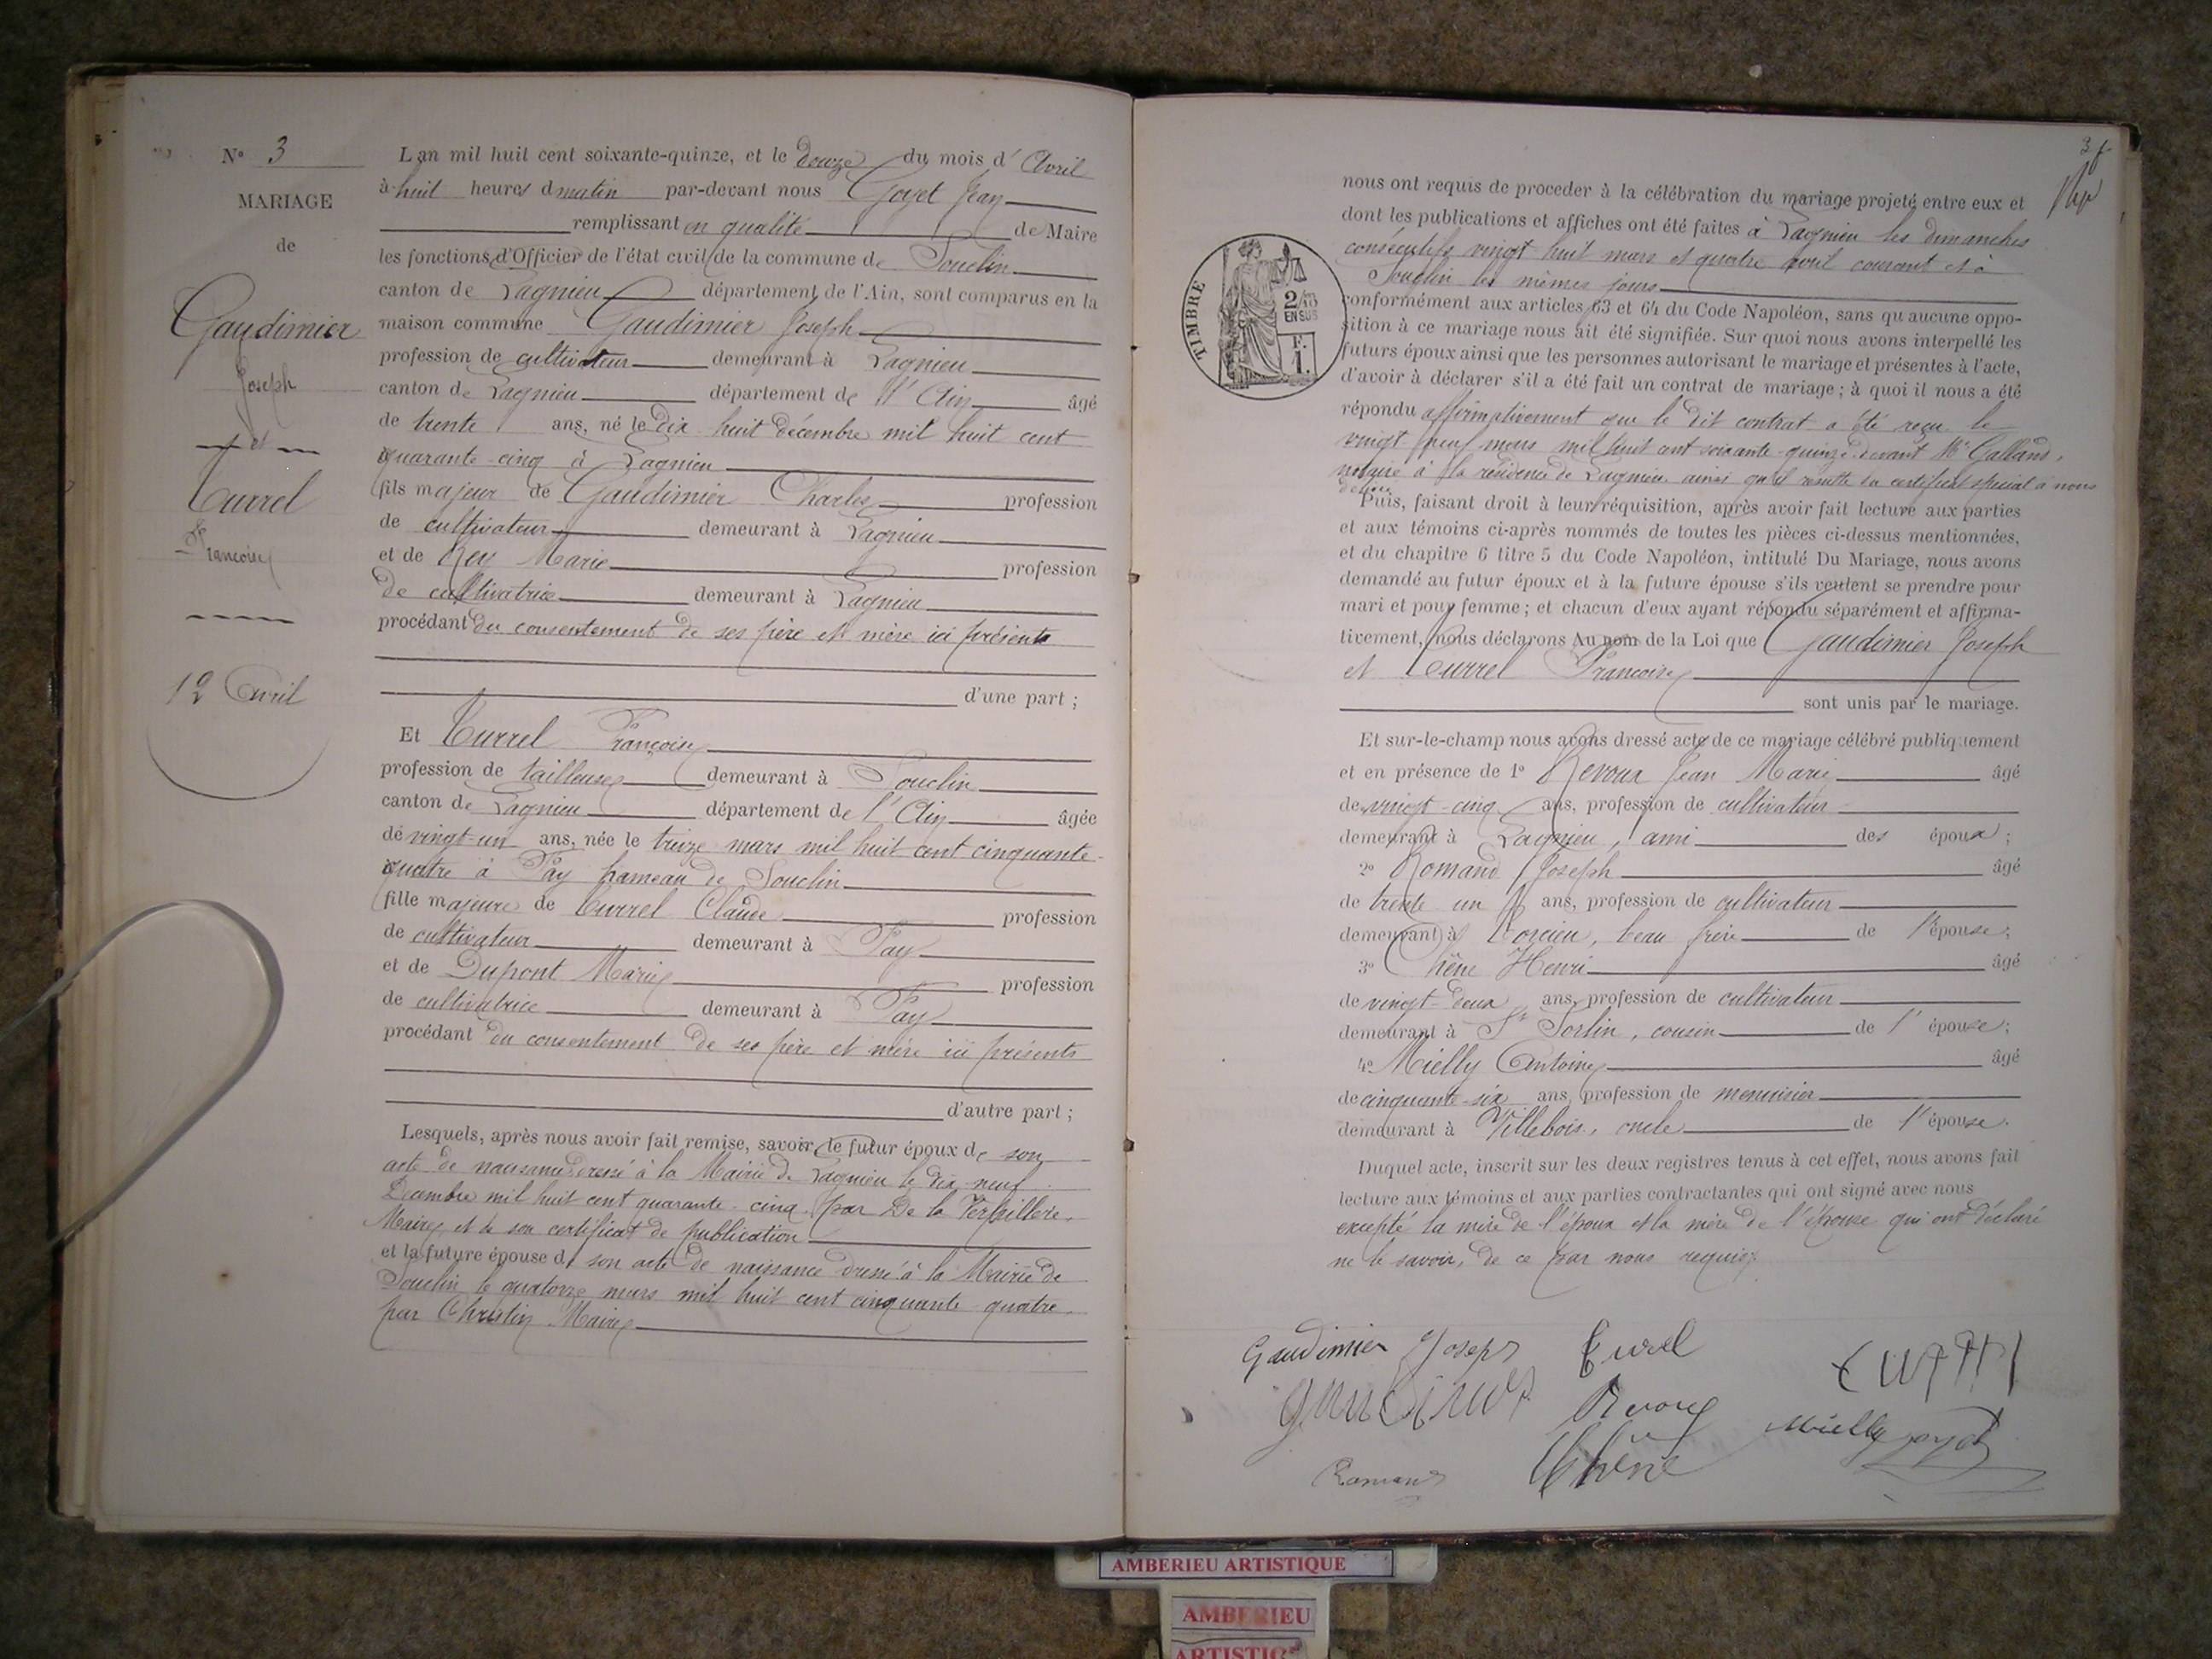 N° 3
MARIAGE
de
Gaudimier
Joseph
et
Turrel
Françoise
12 Avril
L'an mil huit cent soixante-quinze, et le douze du mois d' Avril
à huit heures d matin par-devant nous Goyet Jean
remplissant en qualité de Maire
les fonctions d'Officier de l'état civil de la commune de Souclin
canton de Lagnieu département de l'Ain, sont comparus en la
maison commune Gaudimier Joseph
profession de cultivateur demeurant à Lagnieu
canton de Lagnieu département de l'Ain âgé
de trente ans, né le dix huit décembre mil huit cent
quarante-cinq à Lagnieu
fils majeur de Gaudimier Charles profession
de cultivateur demeurant à Lagnieu
et de Rey Marie profession
de cultivatrice demeurant à Lagnieu
procédant du consentement de ses père et mère ici présents
d'une part ;
Et Turrel Françoise
profession de tailleuse demeurant à Souclin
canton de Lagnieu département de l'Ain âgée
de vingt-un ans, née le treize mars mil huit cent cinquante-
quatre à Fay hameau de Souclin
fille majeure de Turrel Claude profession
de cultivateur demeurant à Fay
et de Dupont Marie profession
de cultivatrice demeurant à Fay
procédant du consentement de ses père et mère ici présents
d'autre part ;
Lesquels, après nous avoir fait remise, savoir le futur époux de son
acte de naissance dressé à la Mairie de Lagnieu le dix-neuf
Décembre mil huit cent quarante-cinq par De la Verpillère,
Maire, et de son certificat de publication
et la future épouse d son acte de naissance dressé à la Mairie de
Souclin le quatorze mars mil huit cent cinquante-quatre,
par Christin Maire
3
TIMBRE
2/10
EN SUS
F.
1.
nous ont requis de proceder à la célébration du mariage projeté entre eux et
dont les publications et affiches ont été faites à Lagnieu les dimanches
consécutifs vingt huit mars et quatre avril courant et à
Souclin les mêmes jours
conformément aux articles 63 et 64 du Code Napoléon, sans qu'aucune oppo-
sition à ce mariage nous ait été signifiée. Sur quoi nous avons interpellé les
futurs époux ainsi que les personnes autorisant le mariage et présentes à l'acte,
d'avoir à déclarer s'il a été fait un contrat de mariage ; à quoi il nous a été
répondu affirmativement que le dit contrat a été reçu le
vingt neuf mars mil huit cent soixante-quinze devant Me Galland,
notaire à la résidence de Lagnieu ainsi qu'il résulte du certificat spécial à nous
Puis, faisant droit à leur réquisition, après avoir fait lecture aux parties
et aux témoins ci-après nommés de toutes les pièces ci-dessus mentionnées,
et du chapitre 6 titre 5 du Code Napoléon, intitulé Du Mariage, nous avons
demandé au futur époux et à la future épouse s'ils veulent se prendre pour
mari et pour femme ; et chacun d'eux ayant répondu séparément et affirma-
tivement, nous déclarons Au nom de la Loi que Gaudimier Joseph
et Turrel Françoise
sont unis par le mariage.
Et sur-le-champ nous avons dressé acte de ce mariage célébré publiquement
et en présence de 1° Revoux Jean Marie âgé
de vingt-cinq ans, profession de cultivateur
demeurant à Lagnieu, ami des époux ;
2° Romand Joseph âgé
de trente un ans, profession de cultivateur
demeurant à Torcieu, beau frère de l'épouse ;
3° Chêne Henri âgé
de vingt-deux ans, profession de cultivateur
demeurant à St Sorlin, cousin de l'épouse ;
4° Mielly Antoine âgé
de cinquante-six ans, profession de menuisier
demeurant à Villebois, oncle de l'épouse.
Duquel acte, inscrit sur les deux registres tenus à cet effet, nous avons fait
lecture aux témoins et aux parties contractantes qui ont signé avec nous
excepté la mère de l'époux et la mère de l'épouse qui ont déclaré
ne le savoir, de ce par nous requis.
Gaudimier Joseph Turel
Revoux Mielly goyet
Romand Chêne
AMBERIEU ARTISTIQUE
AMBERIEU